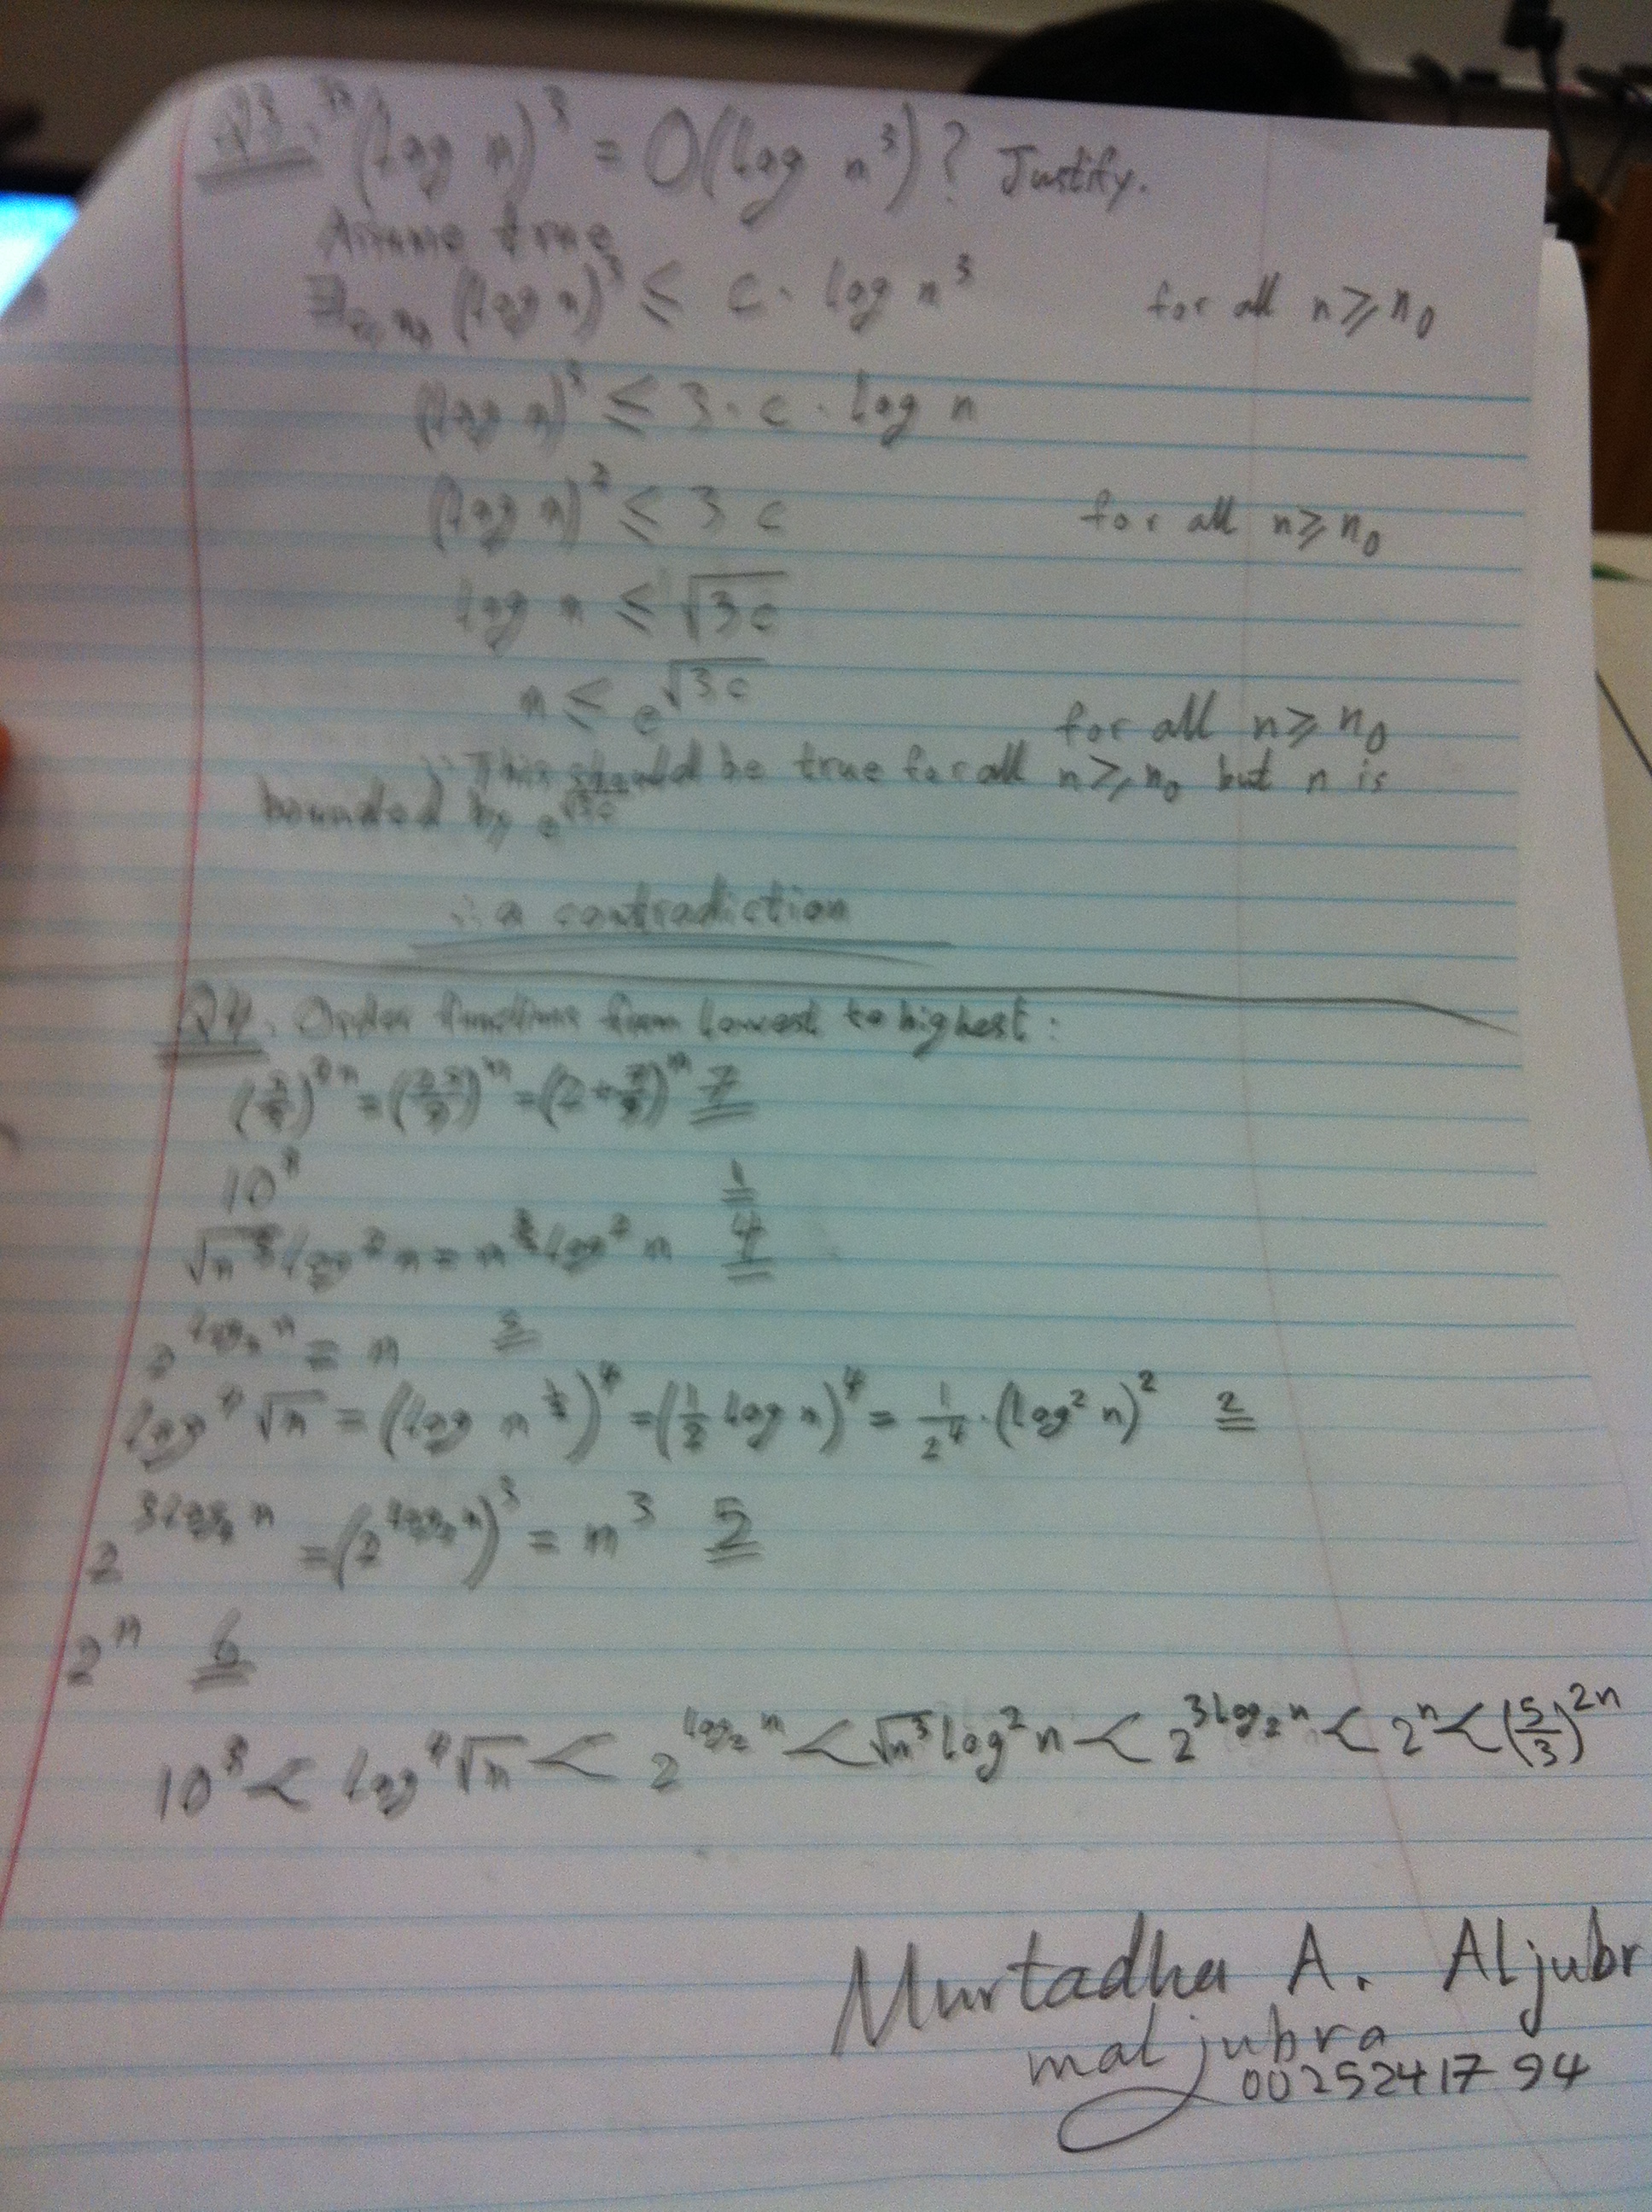 Q3. Is (log n)³ = O(log n³)? Justify.
Assume true
∃c, n₀ (log n)³ ≤ c · log n³ for all n ≥ n₀
(log n)³ ≤ 3 · c · log n
(log n)² ≤ 3 c for all n ≥ n₀
log n ≤ √3c
n ≤ e^√3c for all n ≥ n₀
This should be true for all n ≥ n₀ but n is
bounded by e^√3c
∴ a contradiction
Q4. Order functions from lowest to highest:
7
10 1
log² n = n log² n 4
2^log₂ n = n 3
log⁴ √n = (log n^½)⁴ = (½ log n)⁴ = 1/2⁴ · (log² n)² 2
2^3log₂ n = (2^log₂ n)³ = n³ 5
2ⁿ 6
10 < log⁴ √n < 2^log₂ n < √n³ log² n < 2^3log₂ n < 2ⁿ < (5/3)^2n
Murtadha A. Aljubr
maljubra
0025241794